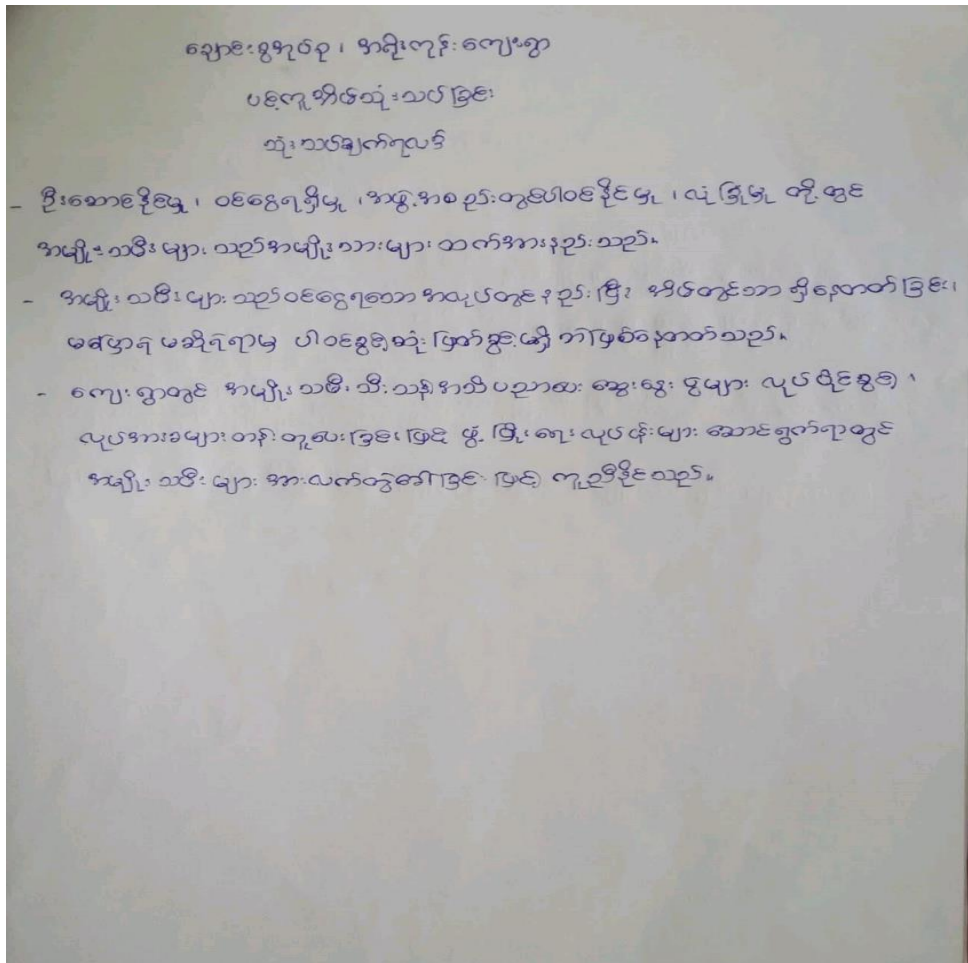 ချောင်းစွအုပ်စု ၊ အရိုးကုန်းကျေးရွာ
ပင့်ကူအိမ်သုံးသပ်ခြင်း
သုံးသပ်ချက်ရလဒ်
- ဦးဆောင်နိုင်မှု ၊ ဝင်ငွေရရှိမှု ၊ အဖွဲ့အစည်းတွင်ပါဝင်နိုင်မှု ၊ လုံခြုံမှု တို့တွင်
အမျိုးသမီးများ သည်အမျိုးသားများ ထက်အားနည်းသည်။
- အမျိုးသမီးများသည်ဝင်ငွေရသော အလုပ်တွင်နည်းပြီး အိမ်တွင်သာ ရှိနေတတ်ခြင်း၊
မဆုံးဖြတ်ခွင့်မရှိ ဘဲဖြစ်နေတတ်သည်။
- ကျေးရွာတွင် အမျိုးသမီးသီးသန့်အသိပညာပေး ဆွေးနွေးပွဲများ လုပ်ပိုင်ခွင့် ၊
လုပ်အားခများတန်းတူပေးခြင်းဖြင့် ဖွံ့ဖြိုးရေးလုပ်ငန်းများ ဆောင်ရွက်ရာတွင်
အမျိုးသမီးများ အားလက်တွဲခေါ်ခြင်းဖြင့် ကူညီနိုင်သည်။